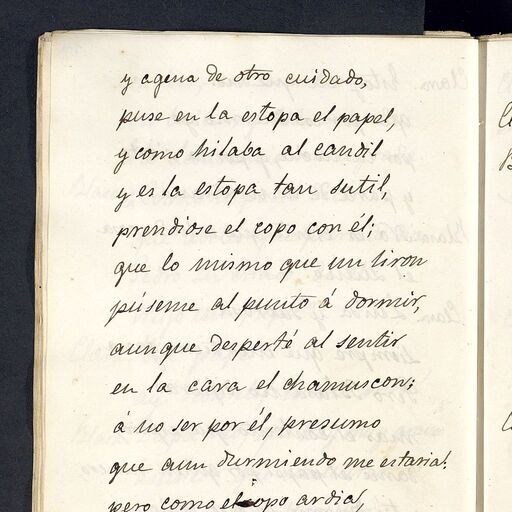 y agena de otro cuidado,
puse en la estopa el papel,
y como hilaba al candil
y es la estopa tan sutil,
prendiose el copo con él;
que lo mismo que un liron
púseme al punto á dormir,
aunque desperté al sentir
en la cara el chamuscon;
á no ser por él, presumo
que aun durmiendo me estaria!
pero como el copo ardia,